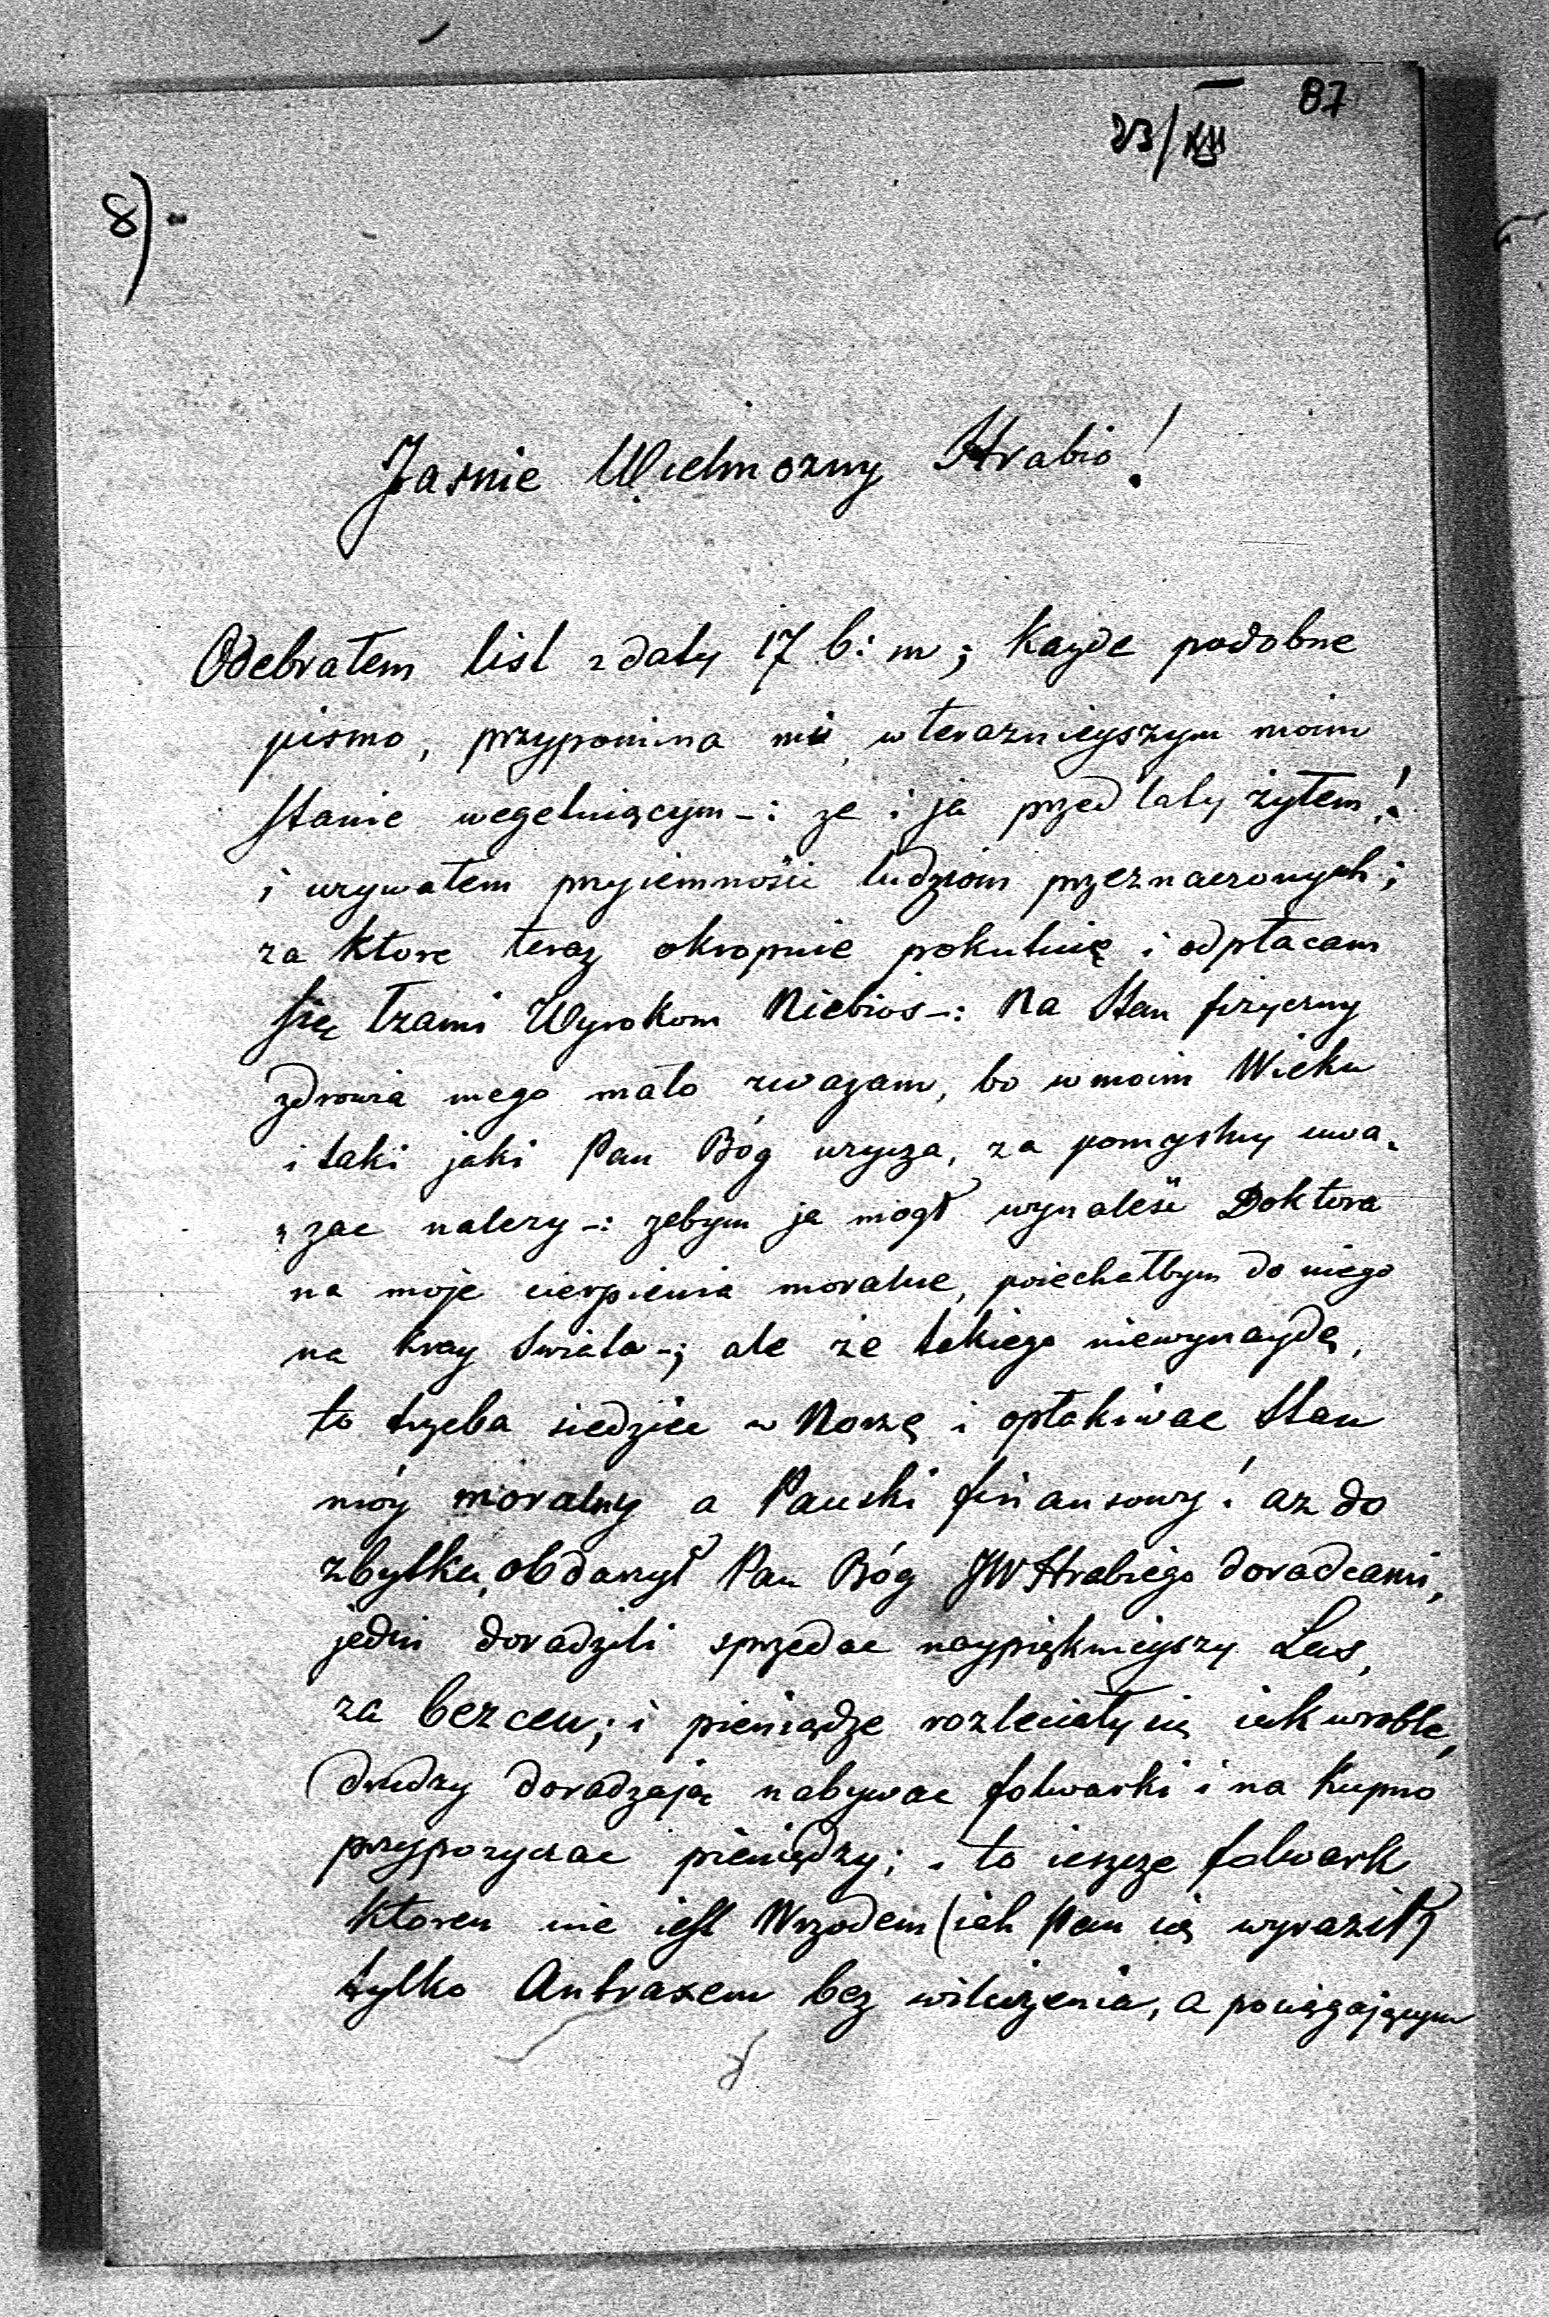 87
23/XII
8)-
Jasnie Wielmozny Hrabio!
Odebrałem list z daty 17 b: m; Kazde podobne
pismo, przypomina mi w terazniejszym moim
stanie wegetuiącym -: ze i ja przed laty żyłem!
i uzywałem przyiemności ludziom przeznaczonych;
za ktore teraz okropnie pokutuię i odpłacam
się łzami Wyrokom Niebios -: Na Stan fizyczny
zdrowia mego mało zwazam, bo w moim Wieku
i taki jaki Pan Bóg uzycza, za pomyslny uwa„
„zac nalezy -: zebym ja mogł wynaleść Doktora
na moje cierpienia moralne, poiechałbym do niego
na kray swiata -; ale że takiego niewynaydę,
to trzeba siedziec w Norzę i opłakiwac Stan
móy moralny a Panski finansowy! az do
zbytku obdarzył Pan Bóg JW Hrabiego doradcami,
jedni doradzili sprzedac naypięknieyszy Las,
za bezcen; i pieniądze rozleciały się iak wroble,
drudzy doradzają nabywac folwarki i na Kupno
przypozyczac pieniędzy; to ieszcze folwark
ktoren nie iest Wrzodem (iak Pan się wyraził)
tylko Antraxem bez wyleczenia, a pociągającym